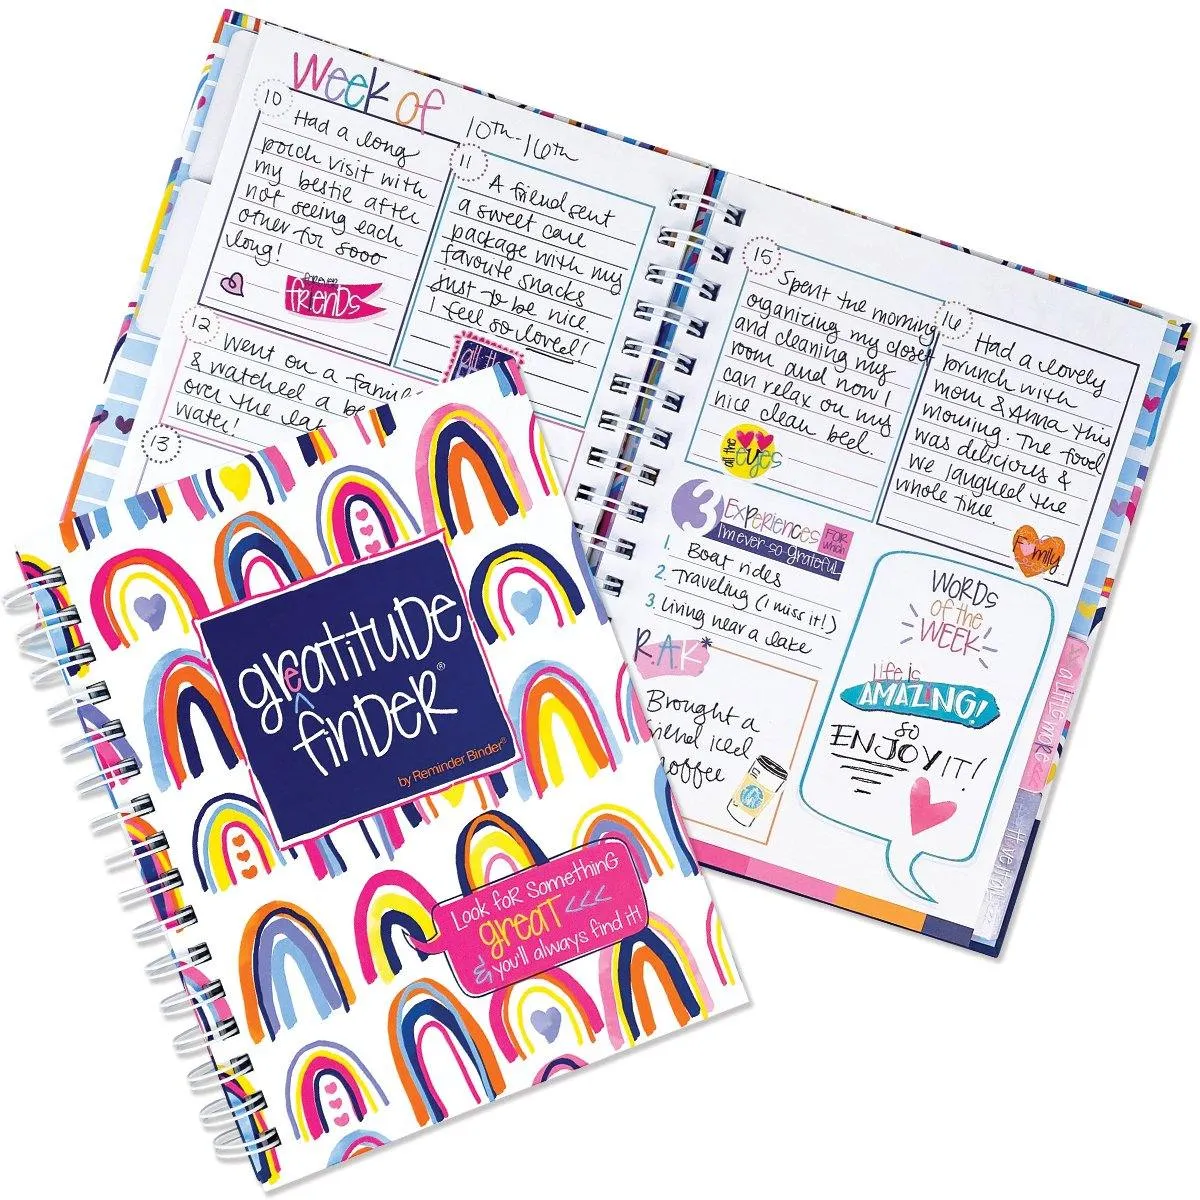 Week of
10th-16th
10
Had a long
porch visit with
my bestie after
not seeing each
other for sooo
long!
forever
friends
11
A friend sent
a sweet care
package with my
favorite snacks
just to be nice.
I feel so loved!
all the
12
Went on a family
& watched a
over the
water!
13
15
Spent the morning
organizing my closet
and cleaning my
room and now I
can relax on my
nice clean bed.
all the
eyes
16
Had a lovely
brunch with
mom & Anna this
morning. The food
was delicious &
we laughed the
whole time.
Family
3 Experiences for which
I'm ever-so-grateful
1. Boat rides
2. Traveling (I miss it!)
3. Living near a lake
R.A.K*
Brought a
friend iced
coffee
WORDS
of the
WEEK
Life is
AMAZING!
so
ENJOY IT!
a little more
greatitude
finder®
by Reminder Binder®
Look for something
great <<<
& you'll always find it!